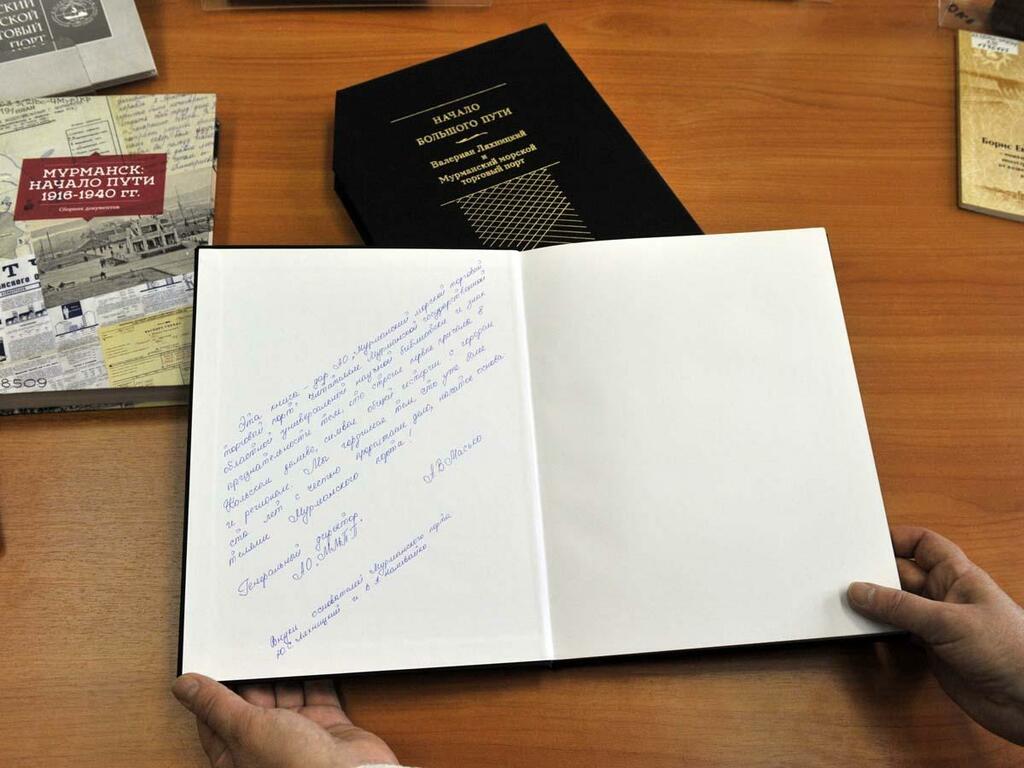 СКИЙ
СКОЙ
ТОВЫЙ
ПОРТ
МУРМАНСК:
НАЧАЛО ПУТИ
1916-1940 ГГ.
Сборник документов
8509
НАЧАЛО
БОЛЬШОГО ПУТИ
Валериан Ляхницкий
и
Мурманский морской
торговый порт
Борис
Эта книга - дар АО "Мурманский морской торговый
торговый порт" читателям Мурманской государственной
областной универсальной научной библиотеки и знак
признательности тем, кто строил первые причалы в
Кольском заливе, символ общей истории с городом
и регионом. Мы гордимся тем, что уже более
ста лет с честью продолжаем дело, начатое основа-
телями Мурманского порта!
Генеральный директор
АО "ММТП"
А В Масько
Внуки основателей Мурманского порта
Ю С Ляхницкий и В А